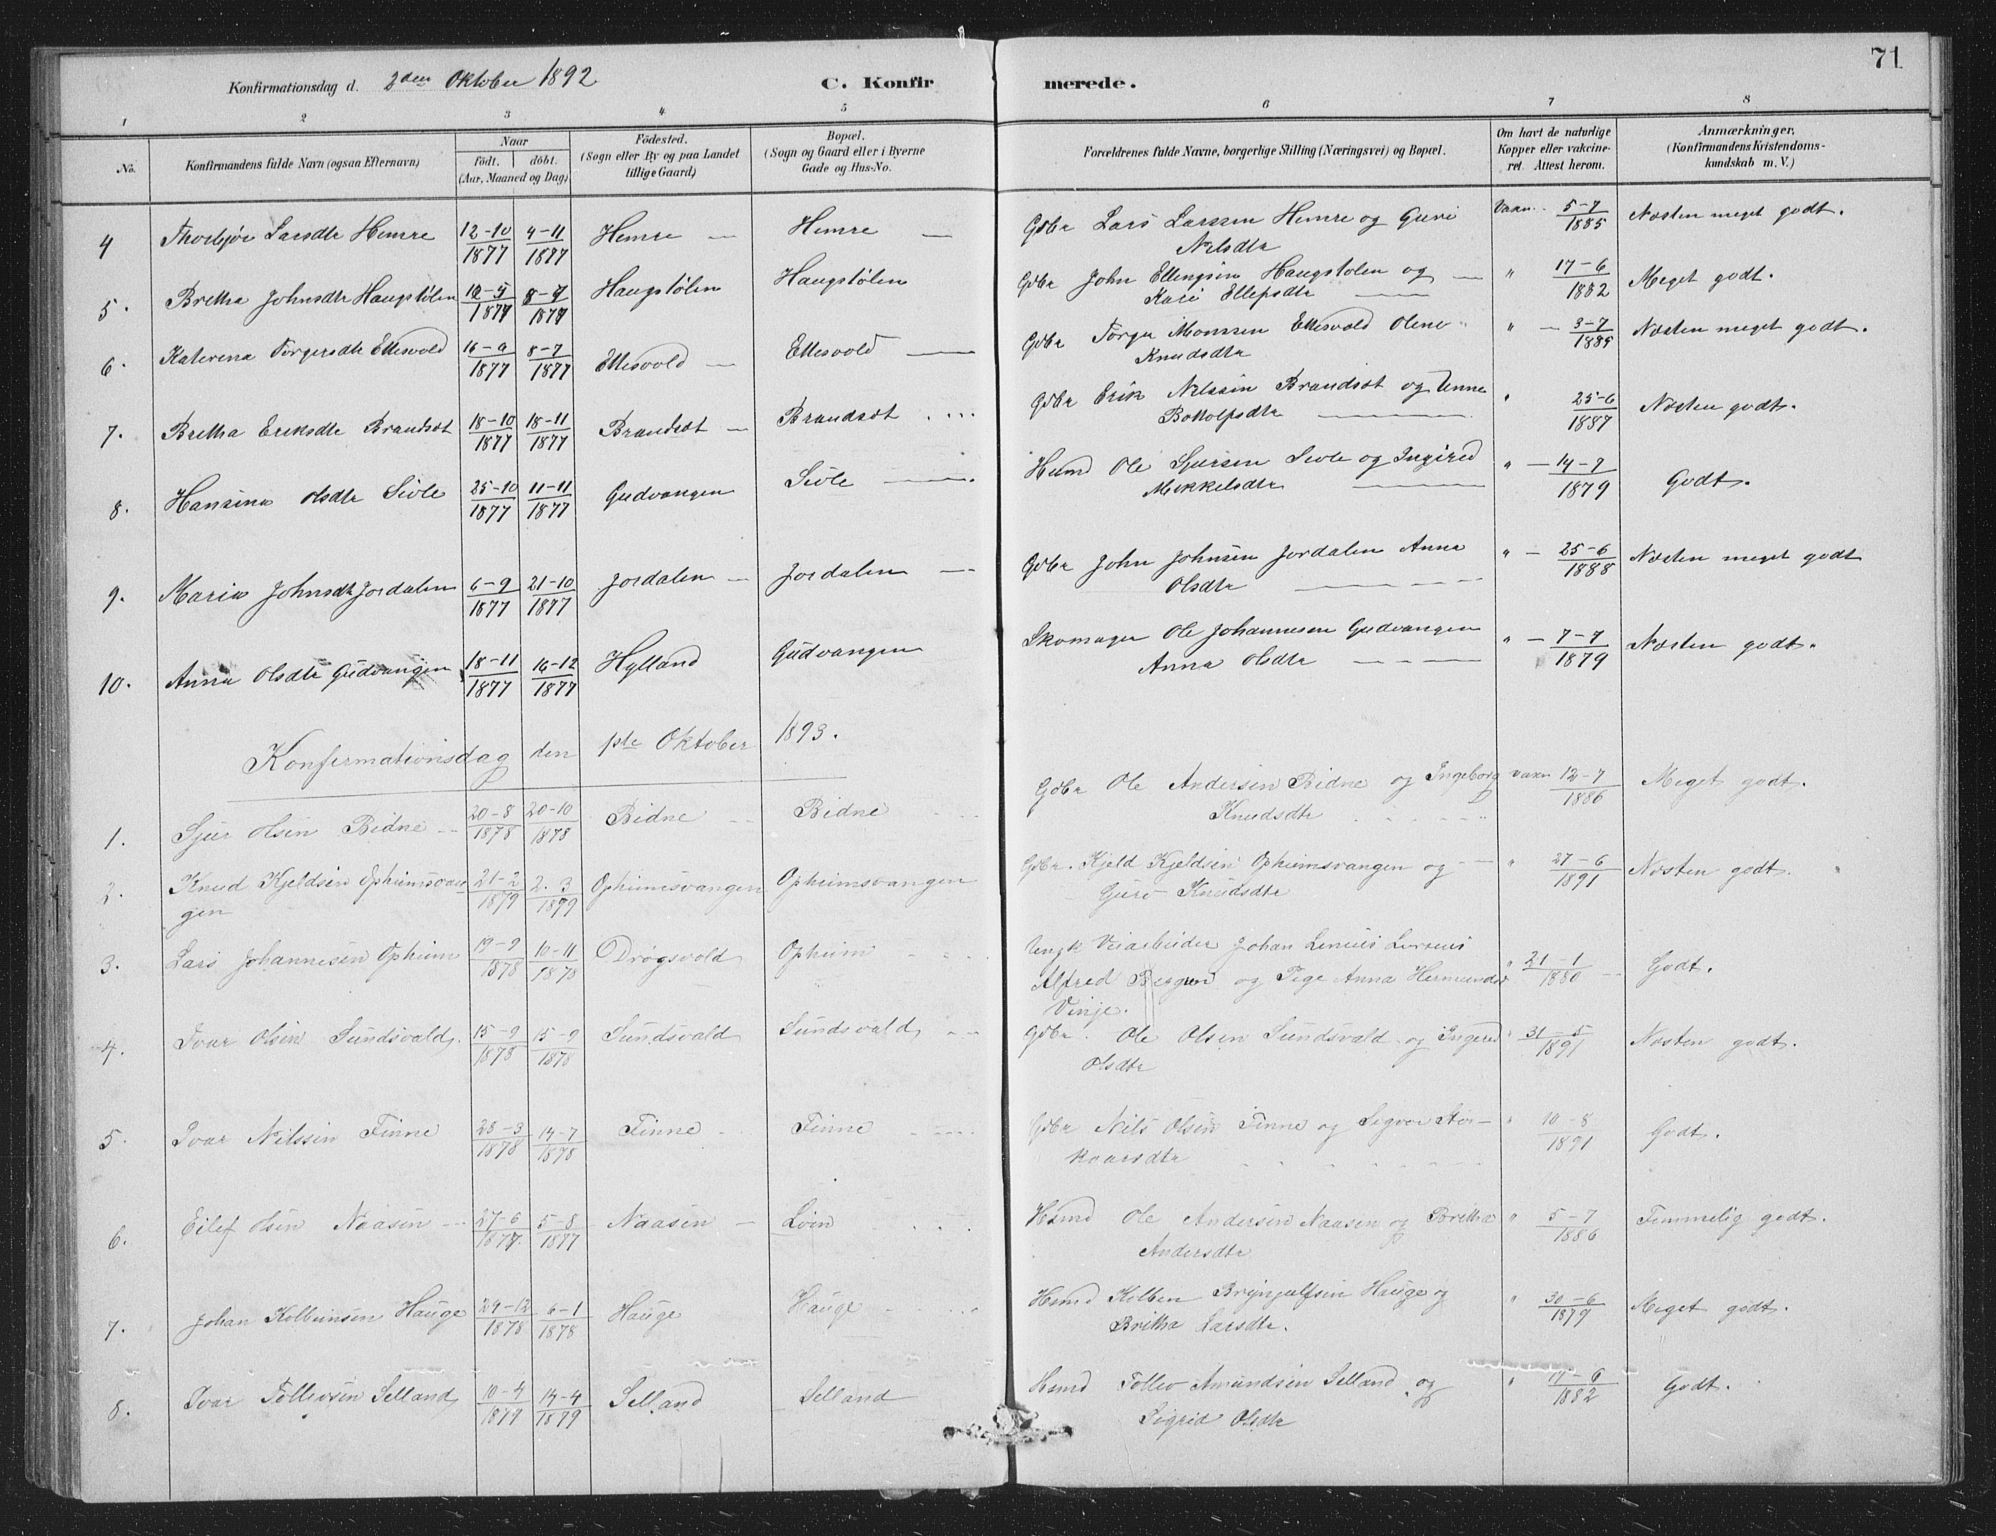 71
Konfirmationsdag d. 2den Oktober 1892
C. Konfirmerede.
1 2 3 4 5 6 7 8
No.
Konfirmandens fulde Navn (ogsaa Efternavn)
Naar
födt. döbt.
(Aar, Maaned og Dag)
Födested.
(Sogn eller By og paa Landet
tillige Gaard)
Bopæl.
(Sogn og Gaard eller i Byerne
Gade og Hus-No.
Forældrenes fulde Navne, borgerlige Stilling (Næringsvei) og Bopæl.
Om havt de naturlige
Kopper eller vakcine-
ret. Attest herom.
Anmærkninger.
(Konfirmandens Kristendoms-
kundskab m. V.)
4 Thorbjør Larsdtr Hemre 12-10 1877 4-11 1877 Hemre — Hemre — Gdbr Lars Larssen Hemre og Guri Vaxn. 5-7 1885 Næsten meget godt.
Nelsdtr
5. Britha Johnsdtr Haugstølen 1877 1877 Haugstølen Haugstølen Gdbr John Ellingsen Haugstølen og — " 17-6 1882 Meget godt.
Kari
6. Katerena Torgersdtr Ettesvold 1877 8-7 1877 Ettesvold — Ettesvold — Gdbr Torger Monssen Ettesvold Olene " — 3-7 1885 Næsten meget godt.
Knudsdtr
7. Britha Eriksdtr Brandsøt 18-10 1877 18-11 1877 Brandsøt — Brandsøt Gdbr Erik Nilssen Brandsøt og Unne " 25-6 1887 Næsten godt.
Bottolfsdtr
8. Hansina Olsdtr Sivle 25-10 1877 11-11 1877 Gudvangen Sivle — Husmd Ole Sjursen Sivle og Ingired " — 14-7 1879 Godt.
Mikkelsdtr
9. Maria Johnsdt Jordalen 6-9 1877 21-10 1877 Jordalen — Jordalen — Gdbr John Johnsen Jordalen Anna " — 25-6 1888 Næsten meget godt
Olsdtr
10. Anna Olsdtr Gudvangen 18-11 1877 16-12 1877 Hylland Gudvangen Skomager Ole Johannesen Gudvangen " — 7-7 1879 Næsten godt.
Anna Olsdtr
Konfirmationsdag den 1ste Oktober 1893.
1. Sjur Olsen Bidne 20-8 1878 20-10 1878 Bidne Bidne Gdbr Ole Andersen Bidne og Ingeborg Vaxn 12-7 1886 Meget godt.
Knudsdtr
2. Knud Kjeldsen Opheimsvan 21-2 1879 2. 3 1879 Opheimsvangen Opheimsvangen Gdbr. Kjeld Kjeldsen Opheimsvangen og " 27-6 1891 Næsten godt.
gen
Guro Knudsdtr
3. Lars Johannesen Opheim 19-9 1878 10-11 1878 Drøgsvold Opheim Ungk Veiarbeider Johan
Alfred og Pige Anna Hermundsd " 21-1 1880 Godt.
Vinje.
4. Ivar Olsen Sundsvald 15-9 1878 15-9 1878 Sundsvald Sundsvald Gdbr. Ole Olsen Sundsvald og Ingered " 31-5 1891 Næsten godt.
Olsdtr
5. Ivar Nilssen Finne 28-3 1878 14-7 1878 Finne Finne Gdbr Nils Olsen Finne og Sigvor Stor- " 10-8 1891 Godt.
kaarsdtr
6. Eilef Olsen Naasen 27-6 1877. 5-8 1877 Naasen — Løin Husmd Ole Andersen Naasen og Britha " 5-7 1886 Temmelig godt.
Andersdtr
7. Johan Kolbeinsen Hauge 29-12 1878 6-1 1878 Hauge Hauge Husmd Kolben Brynjulfsen Hauge og " 30-6 1879 Meget godt.
Britha Larsdtr.
8. Ivar Tollevsen Selland 10-4 1879 14-4 1879 Selland Selland Husmd Tollev Amundsen Selland og " 17-6 1882 Godt.
Sigrid Olsdtr